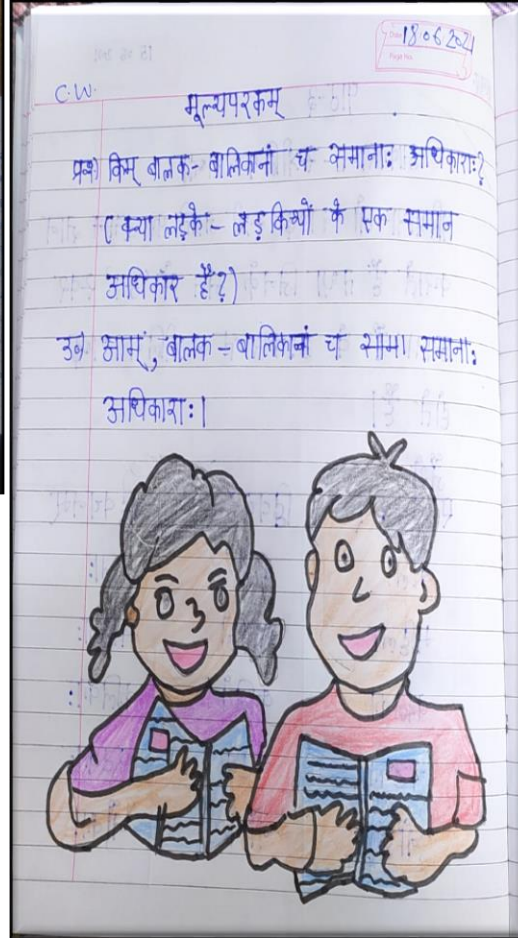 18.06.2021
C.W.
मूल्यपरकम्
प्र०) किम् बालक-बालिकानां च समानाः अधिकाराः?
( क्या लड़के-लड़कियों के एक समान
अधिकार हैं?)
उ०) आम्, बालक-बालिकानां च सामा समानाः
अधिकाराः।